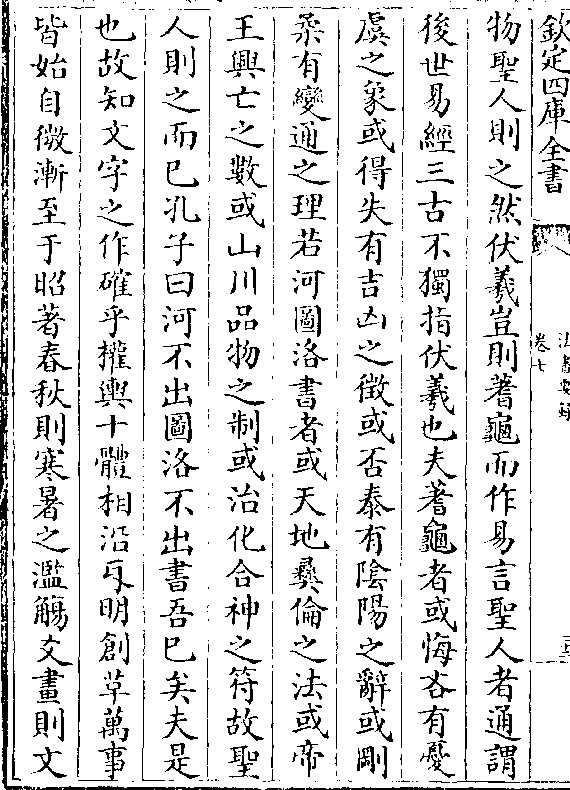 欽定四庫全書
法書要錄
卷七
物聖人則之然伏羲豈則蓍龜而作易言聖人者通謂
後世易經三古不獨指伏羲也夫蓍龜者或悔吝有憂
虞之象或得失有吉凶之徵或否泰有陰陽之辭或剛
柔有變通之理若河圖洛書者或天地彞倫之法或帝
王興亡之數或山川品物之制或治化合神之符故聖
人則之而已孔子曰河不出圖洛不出書吾已矣夫是
也故知文字之作確乎權輿十體相沿互明創草萬事
皆始自微漸至于昭著春秋則寒暑之濫觴爻畫則文